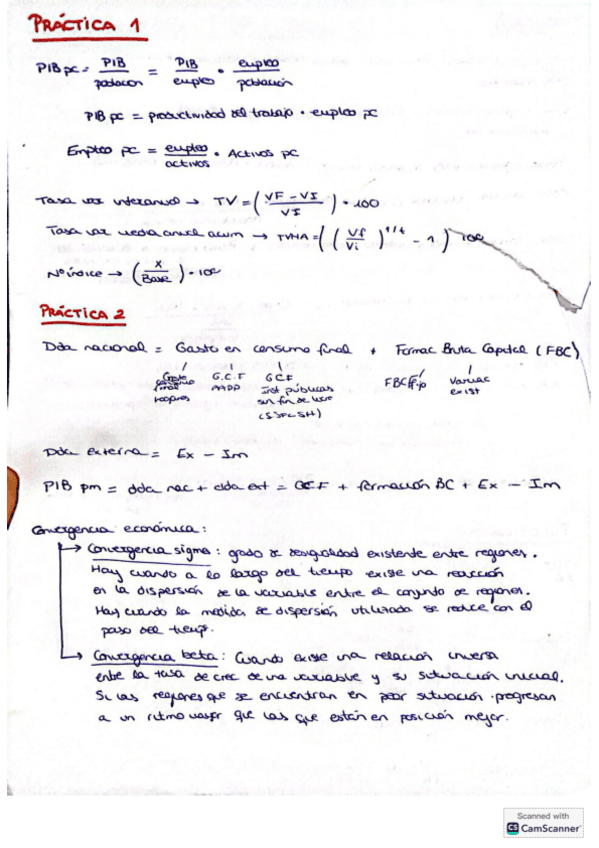 PRÁCTICA 1
PIB pc = PIB/población = PIB/empleo · empleo/población
PIB pc = productividad del trabajo · empleo pc
Empleo pc = empleo/activos · Activos pc
Tasa var interanual → TV = (VF - VI / VI) · 100
Tasa var media anual acum → TVMA = ((Vf/Vi)^1/t - 1) · 100
Nº índice → (X/Base) · 100
PRÁCTICA 2
Dda nacional = Gasto en consumo final + Formac Bruta Capital (FBC)
Gasto consumo final hogares
G.C.F AAPP
GCF inst públicas sin fin de lucro
FBCfijo
Variac exist
Dda externa = Ex - Im
PIB pm = dda nac + dda ext = GCF + formación BC + Ex - Im
Convergencia económica:
→ Convergencia sigma: grado de desigualdad existente entre regiones.
Hay cuando a lo largo del tiempo existe una reducción
en la dispersión de la variable entre el conjunto de regiones.
Hay cuando la medida de dispersión utilizada se reduce con el
paso del tiempo.
→ Convergencia beta: Cuando existe una relación inversa
entre la tasa de crec de una variable y su situación inicial.
Si las regiones que se encuentran en peor situación progresan
a un ritmo mayor que las que están en posición mejor.
Scanned with
CS CamScanner